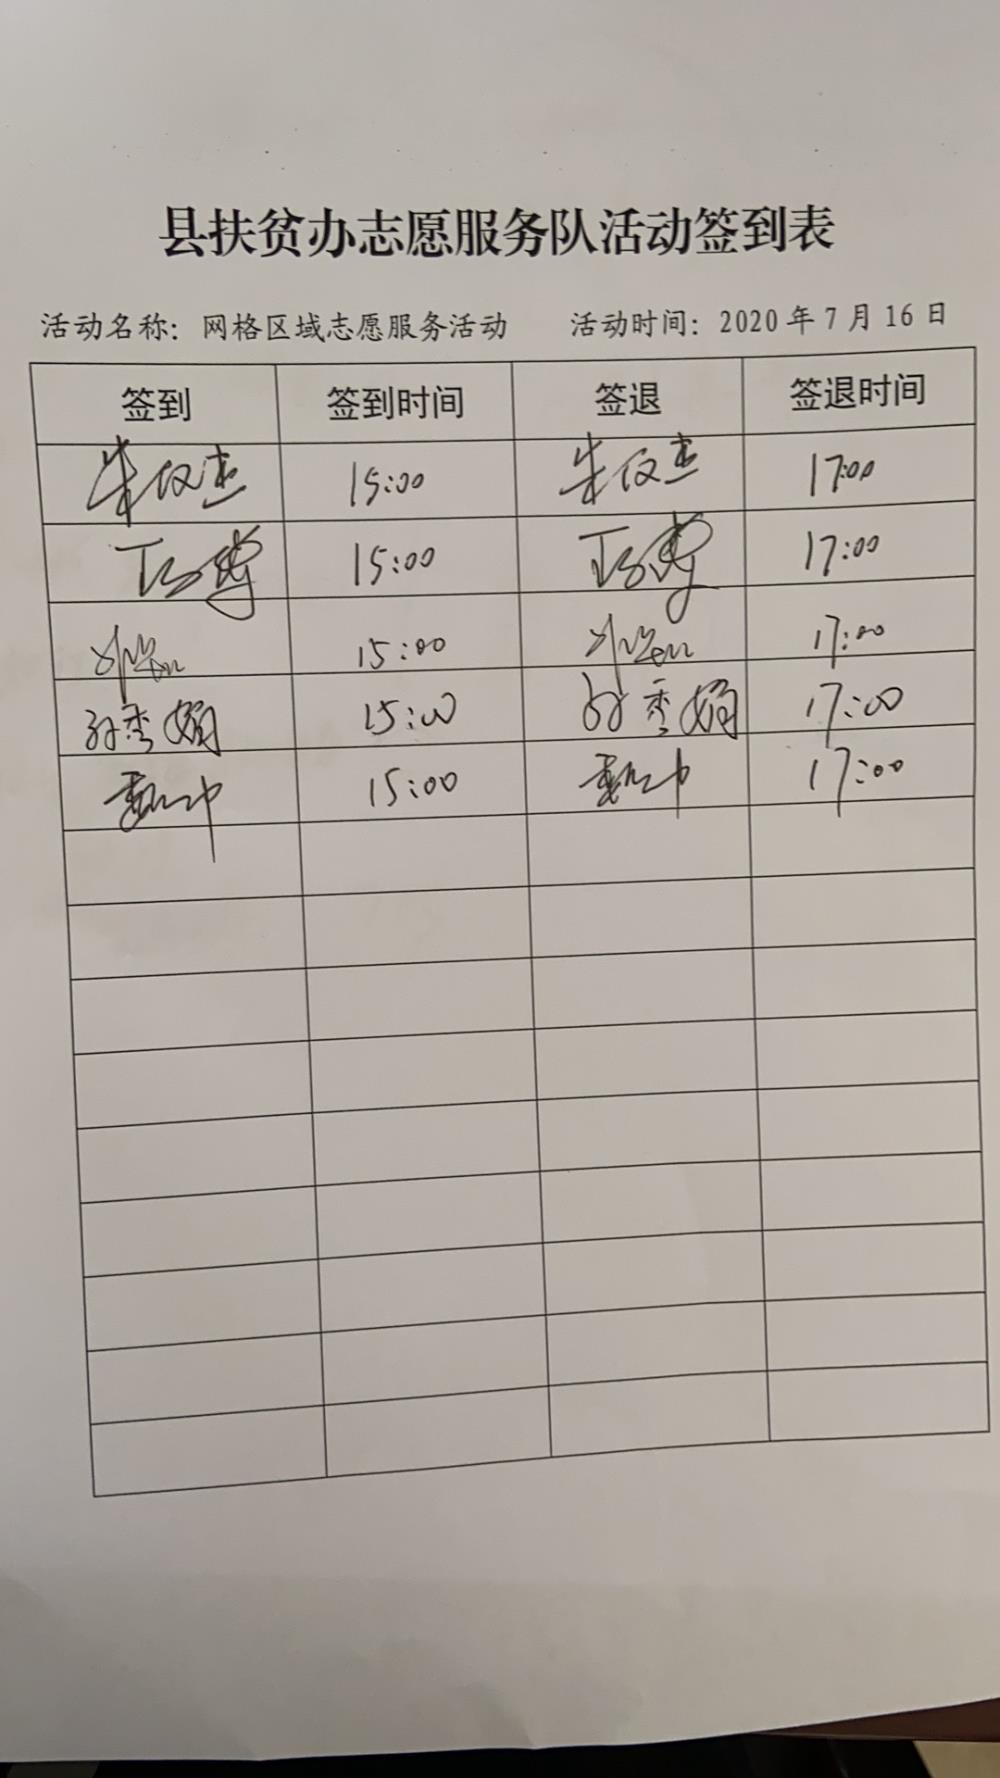 县扶贫办志愿服务队活动签到表
活动名称：网格区域志愿服务活动 活动时间：2020年7月16日
签到 签到时间 签退 签退时间
朱仅杰 15:00 朱仅杰 17:00
15:00 17:00
15:00 17:00
孙秀娟 15:00 孙秀娟 17:00
15:00 17:00